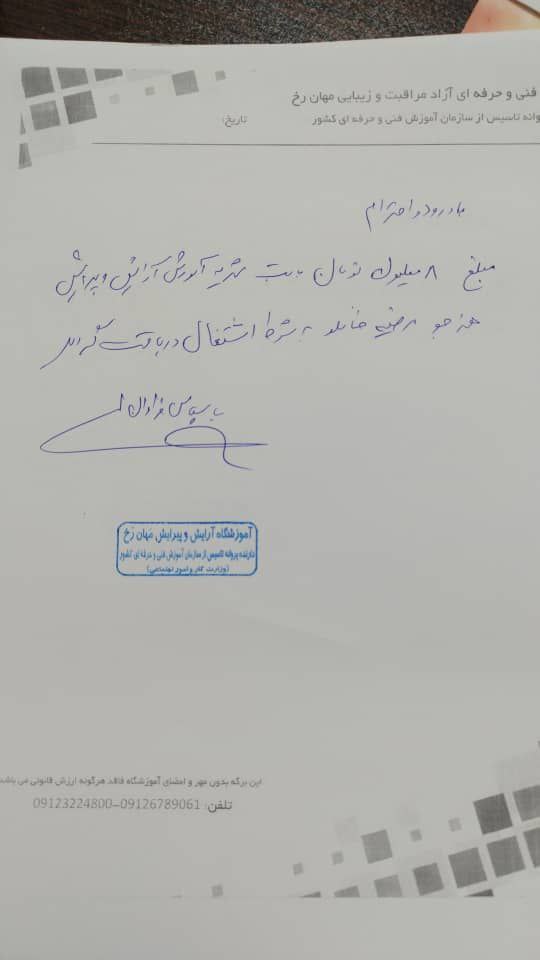 فنی و حرفه ای آزاد مراقبت و زیبایی مهان رخ
وانه تاسیس از سازمان آموزش فنی و حرفه ای کشور
تاریخ:
با درود و احترام
مبلغ ۸ میلیون تومان بابت شهریه آموزش آرایش و پیرایش
هنرجو مرضیه خانلو به شرط اشتغال دریافت گردید
با سپاس فراوان
آموزشگاه آرایش و پیرایش مهان رخ
دارنده پروانه تاسیس از سازمان آموزش فنی و حرفه ای کشور
(وزارت کار و امور اجتماعی)
این برگه بدون مهر و امضای آموزشگاه فاقد هرگونه ارزش قانونی می باشد
تلفن: 09126789061-09123224800